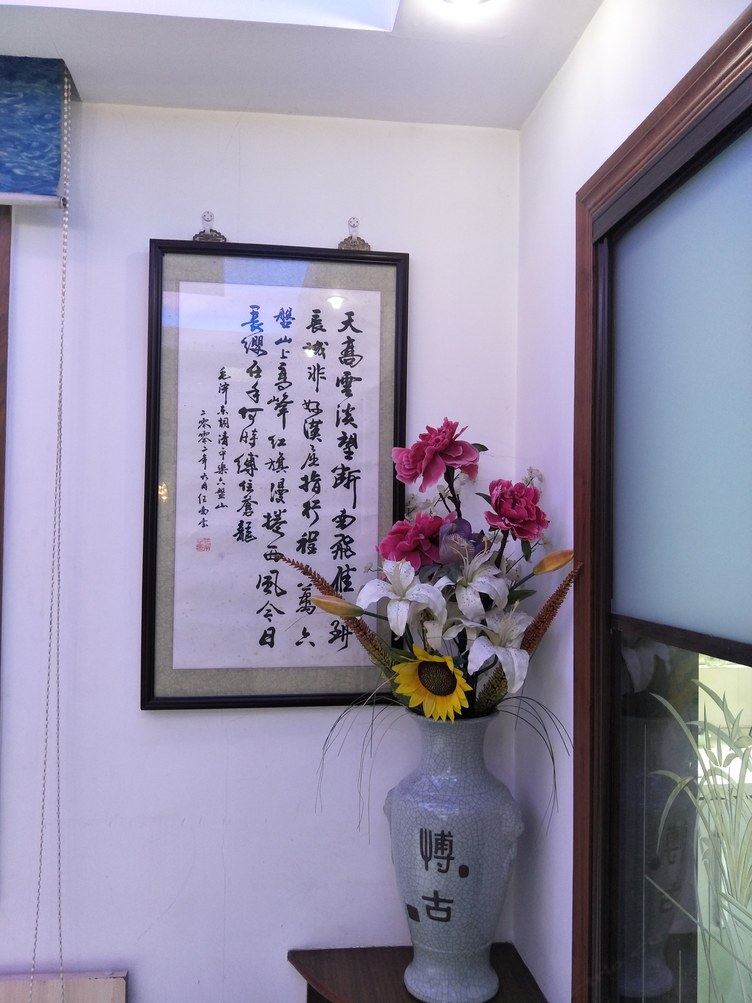 天高雲淡望断南飛雁不到
長城非好漢屈指行程二萬六
盤山上高峰红旗漫捲西風今日
長纓在手何時縛住蒼龍
毛泽东詞清平樂六盤山
二零零二年六月任
博古